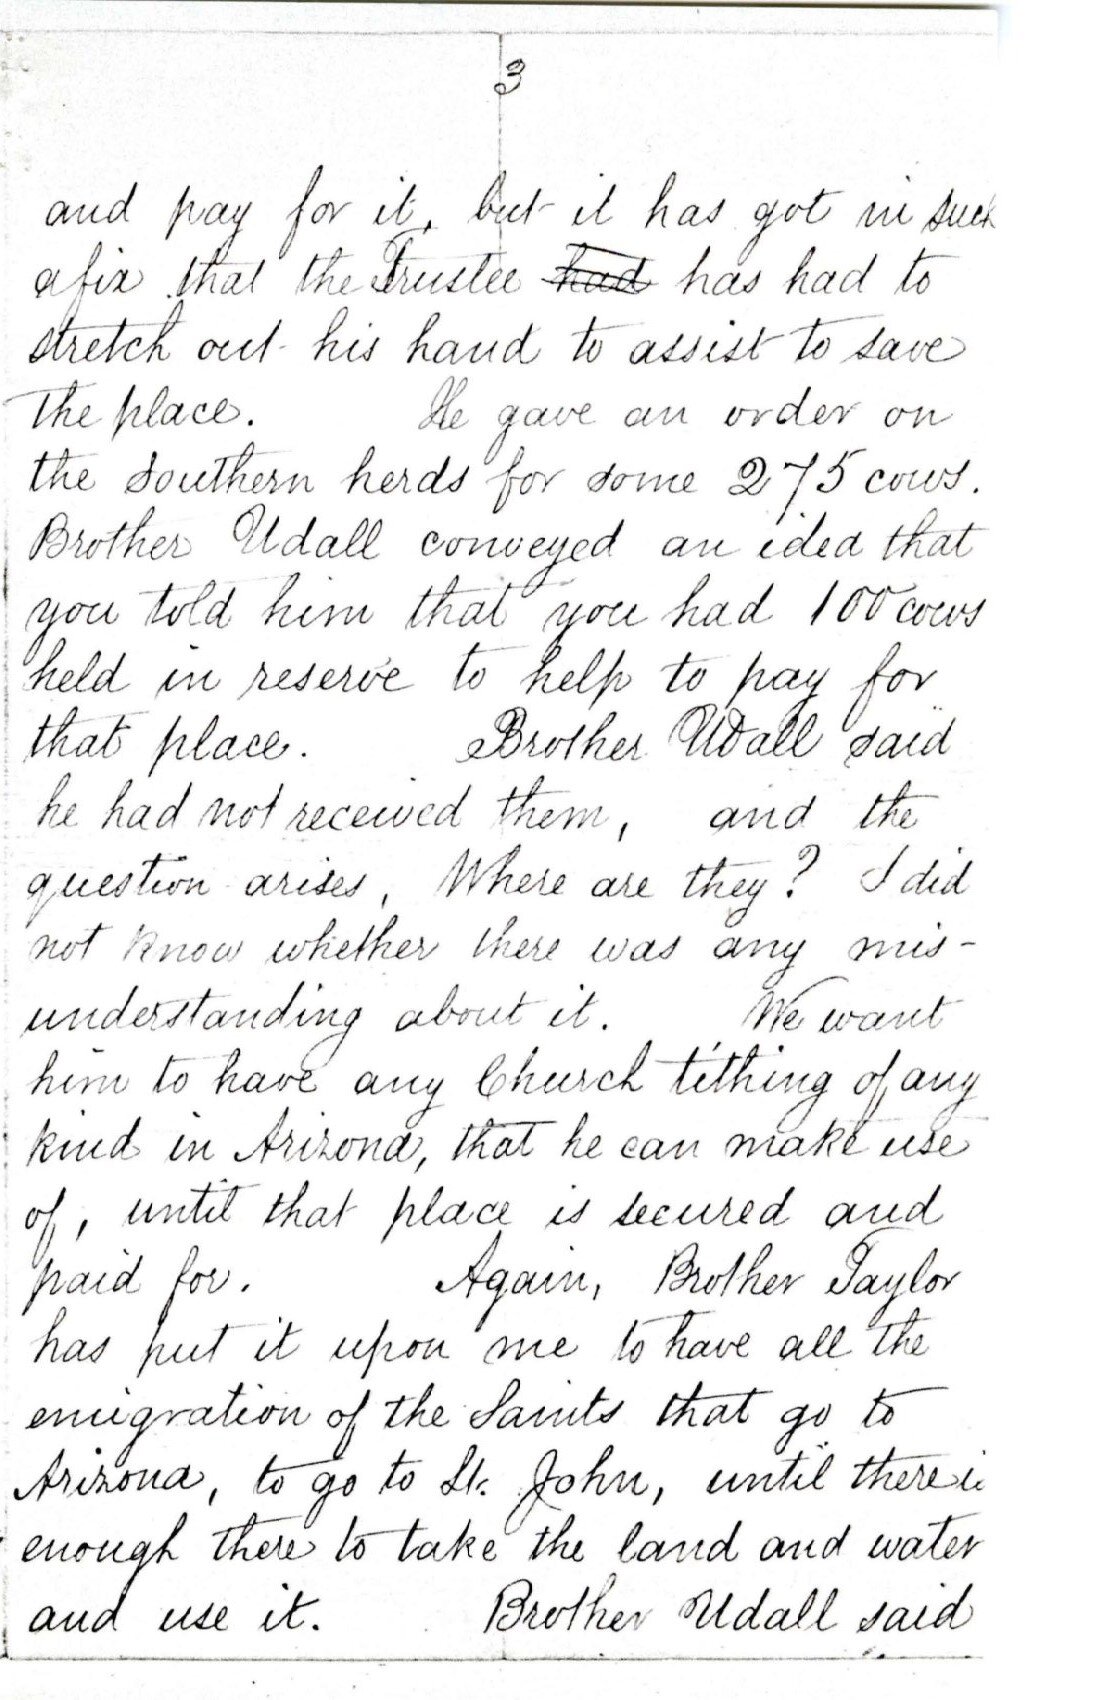 3
and pay for it, but it has got in such
a fix that the Trustee had has had to
stretch out his hand to assist to save
the place. He gave an order on
the southern herds for some 275 cows.
Brother Udall conveyed an idea that
you told him that you had 100 cows
held in reserve to help to pay for
that place. Brother Udall said
he had not received them, and the
question arises, Where are they? I did
not know whether there was any mis-
understanding about it. We want
him to have any Church tithing of any
kind in Arizona, that he can make use
of, until that place is secured and
paid for. Again, Brother Taylor
has put it upon me to have all the
emigration of the Saints that go to
Arizona, to go to St. John, until there is
enough there to take the land and water
and use it. Brother Udall said